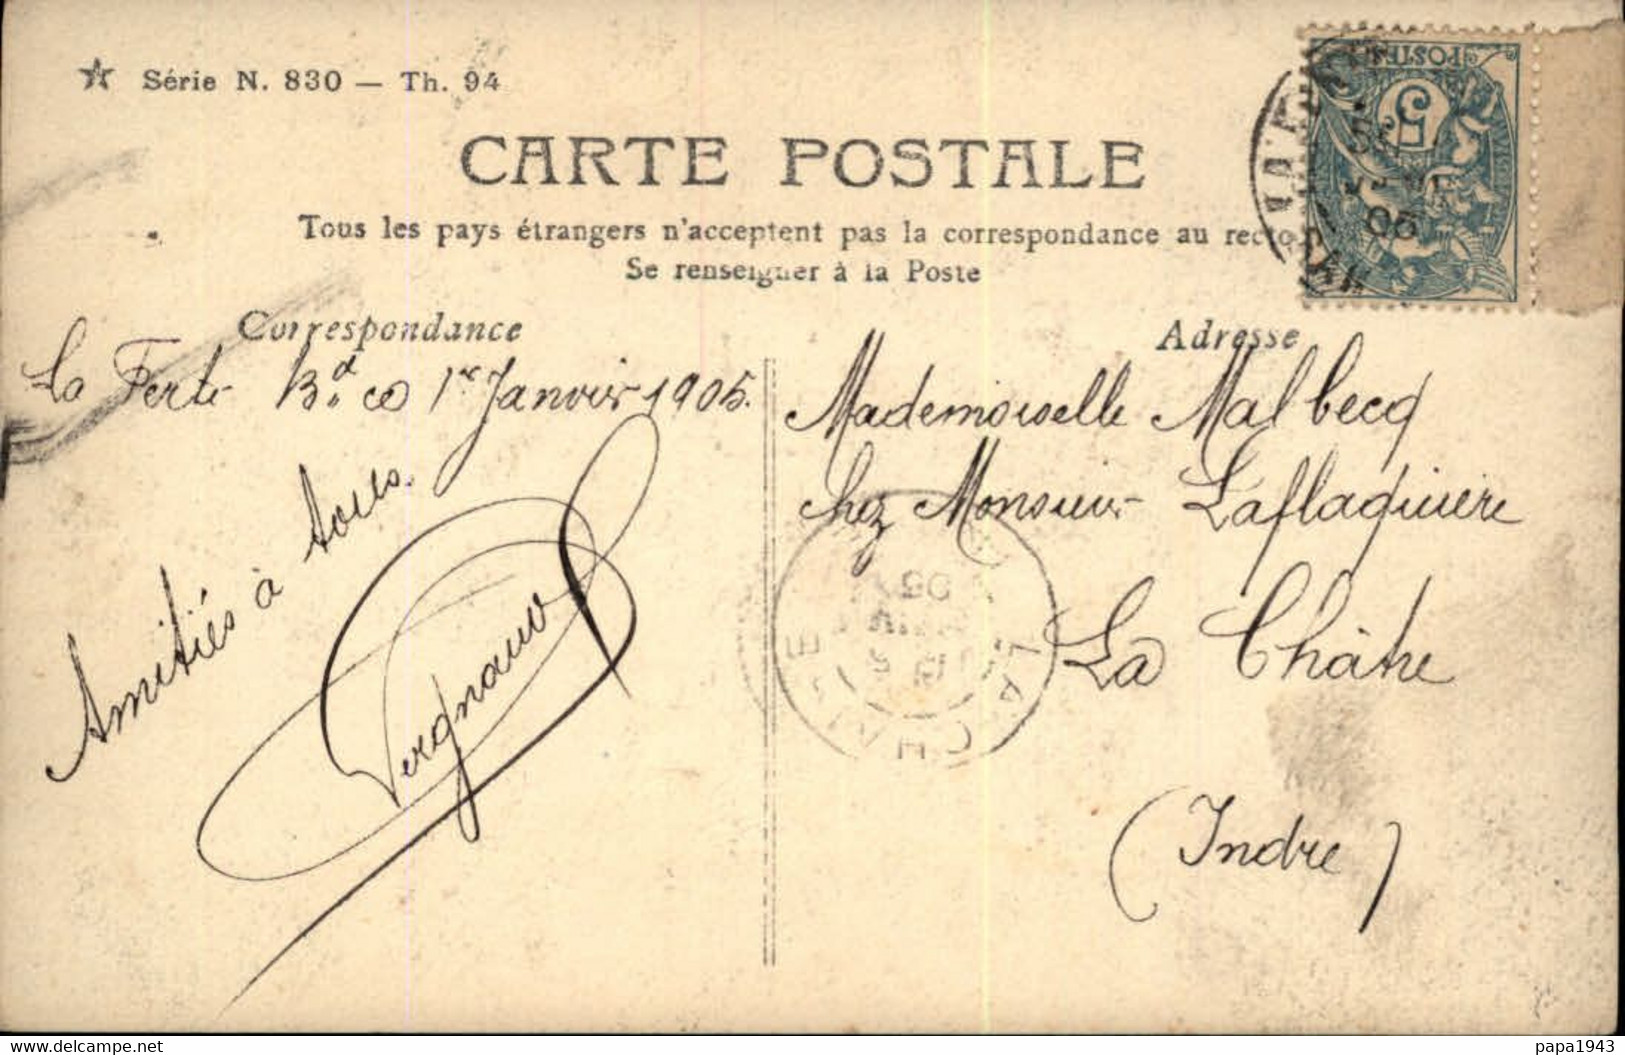 Série N. 830 — Th. 94
CARTE POSTALE
Tous les pays étrangers n'acceptent pas la correspondance au recto
Se renseigner à la Poste
Correspondance
Adresse
La Ferté Bd ce 1er Janvier 1905.
Amitiés à tous.
Vergnaud
Mademoiselle Malbecq
chez Monsieur Laflaquière
La Châtre
(Indre)
POSTES
5
05
LA CHATRE
05
delcampe.net
papa1943